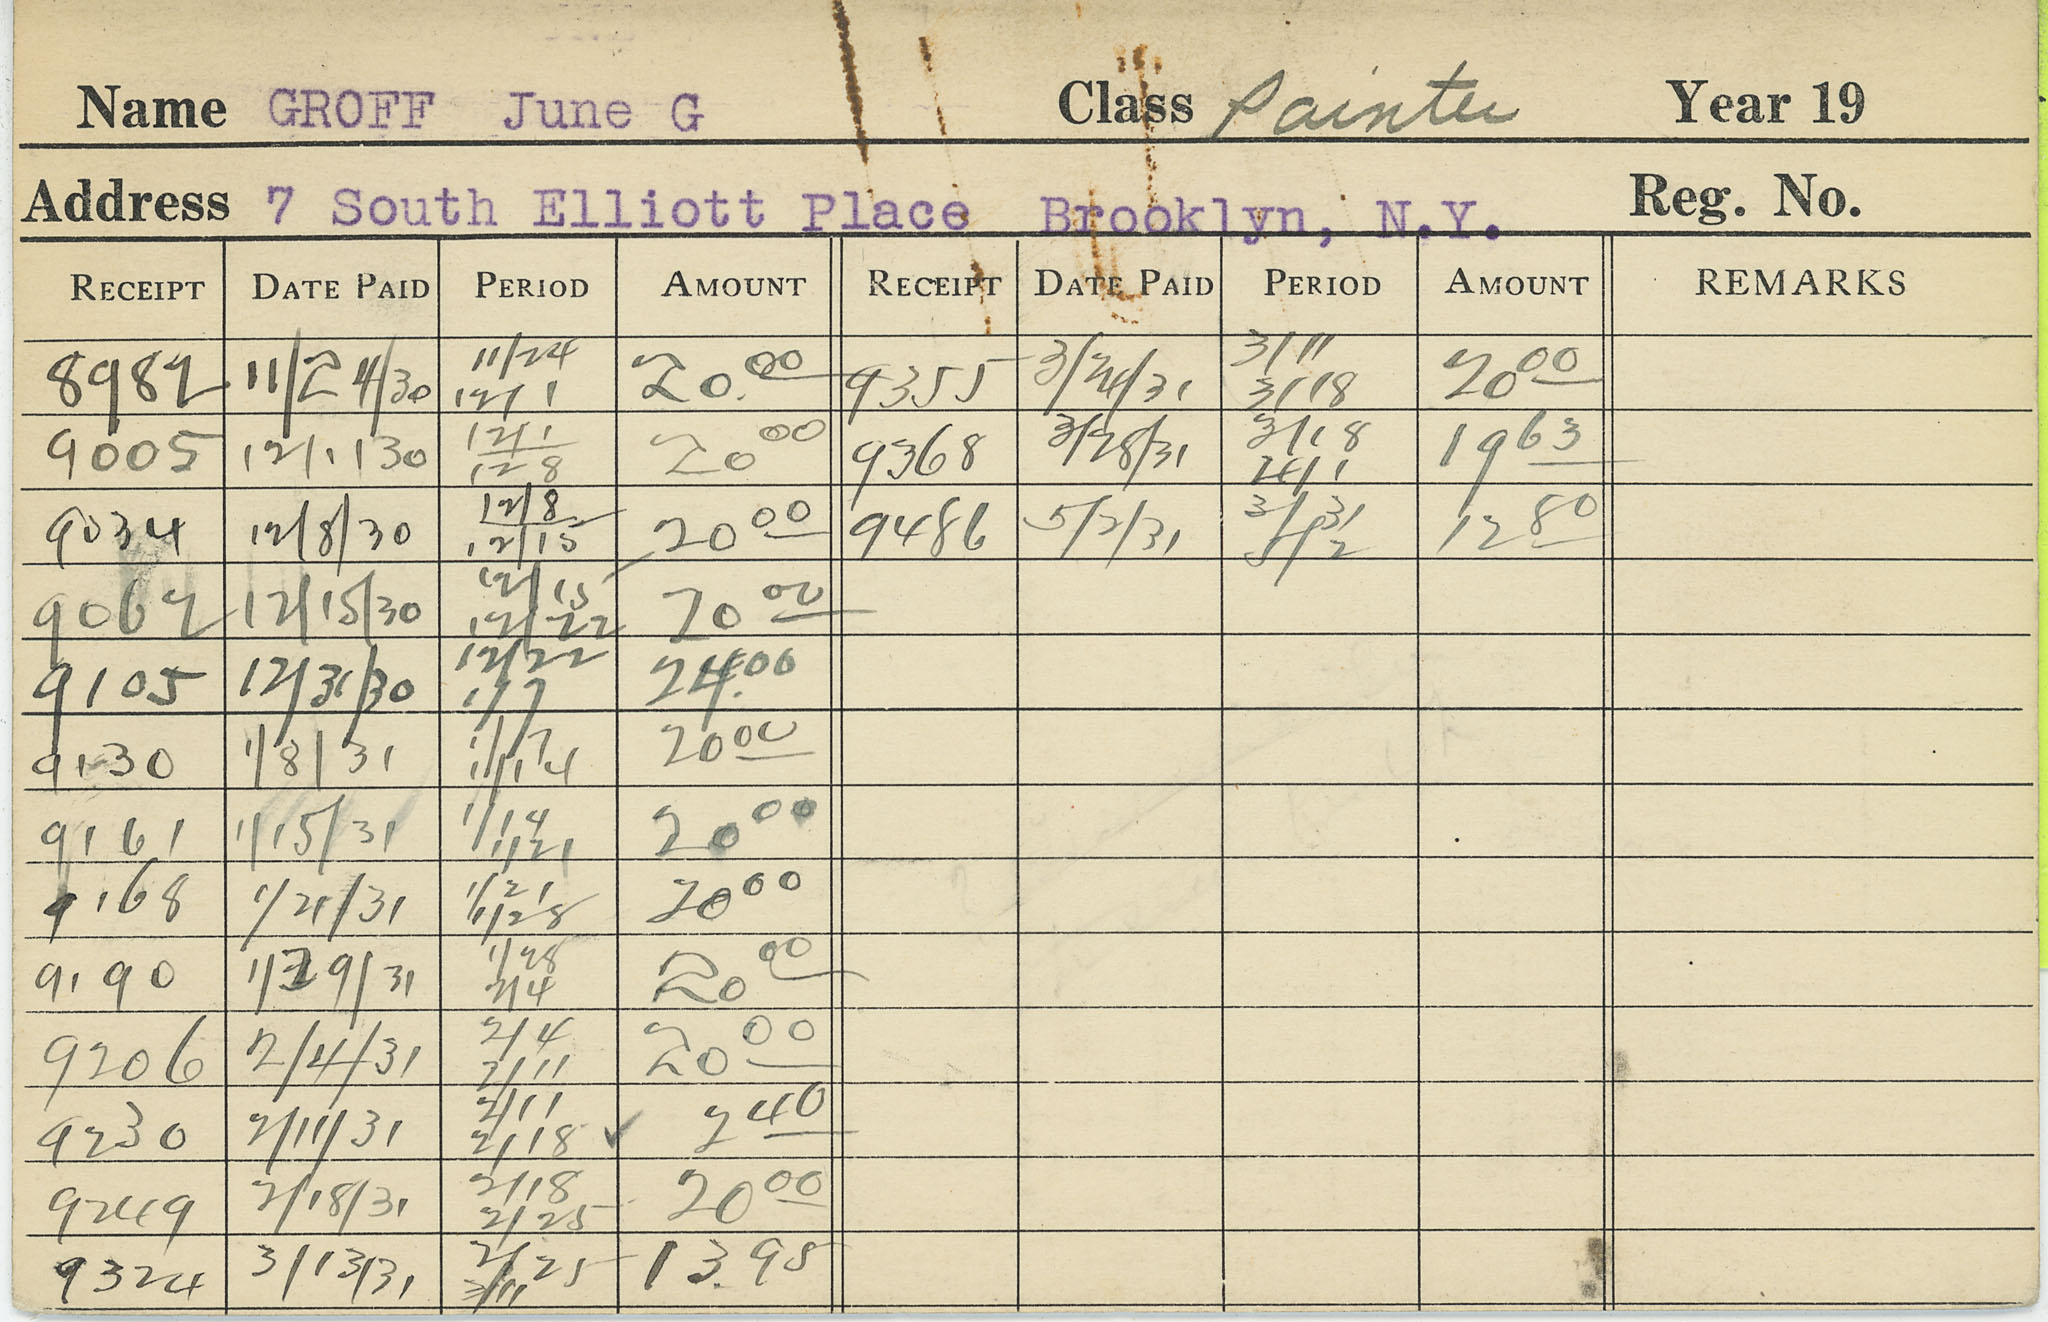 Name GROFF June G Class Painter Year 19
Address 7 South Elliott Place Brooklyn, N.Y. Reg. No.
RECEIPT DATE PAID PERIOD AMOUNT RECEIPT DATE PAID PERIOD AMOUNT REMARKS
8982 11/24/30 11/24 12/1 20.00 9355 3/24/31 3/11 3/18 20 00
9005 12/1/30 12/1 12 8 20 00 9368 3/28/31 3/18 4/1 19 63
9034 12/8/30 12/8 12/15 20 00 9486 5/2/31 3/31 5/2 12 80
9062 12/15/30 12/15 12/22 20 00
9105 12/31/30 12/22 1/7 24.00
9130 1/8/31 1/7 1/14 20 00
9161 1/15/31 1/14 1/21 20 00
9168 1/21/31 1/21 1/28 20 00
9190 1/29/31 1/28 2/4 20 00
9206 2/4/31 2/4 2/11 20 00
9230 2/11/31 2/11 2/18 ✓ 2 40
9249 2/18/31 2/18 2/25 20 00
9324 3/13/31 2/25 3/11 13.95